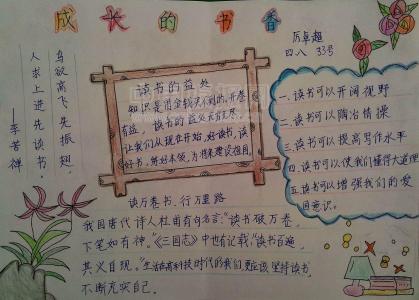 成长的书香
厉卓超
四八 33号
鸟欲高飞先振翅
人求上进先读书
——李苦禅
读书的益处
知识是用金钱买不到的,开卷
有益,读书的益处无穷无尽,
让我们从现在开始,好读书,读
好书,学好本领,为将来建设祖国。
一、读书可以开阔视野
二、读书可以陶冶情操
三、读书可以提高写作水平
四、读书可以使我们懂得大道理
五、读书可以增强我们的爱
国意识。
读万卷书,行万里路
我国唐代诗人杜甫有句名言:“读书破万卷,
下笔如有神。”《三国志》中也有记载,“读书百遍,
其义自现。”生活在高科技时代的我们,更应该坚持读书,
不断充实自己。